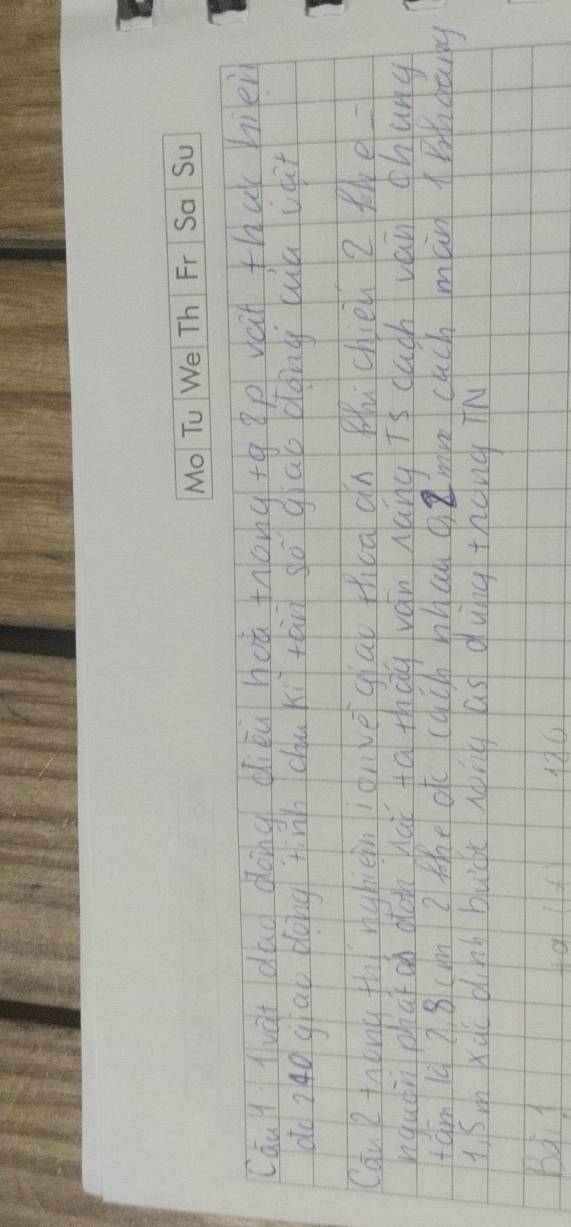 Mo Tu We Th Fr Sa Su
Câu 1: 1 vật dao động điều hoà trong tg 2p vật thực hiện
đc 240 giao động tính chu kì tần số giao động của vật
Câu 2 trong thí nghiệm ionvề giao thoa ás khi chiếu 2 khe
nguồn phát ás đơn sắc ta thấy vân sáng T5 cách vân chung
tâm là 2,8 cm 2 khe đc cách nhau 0,2 mm cách màn 1 khoảng
1,5m xác định bước sóng ás dùng trong TN
Bài 1
120